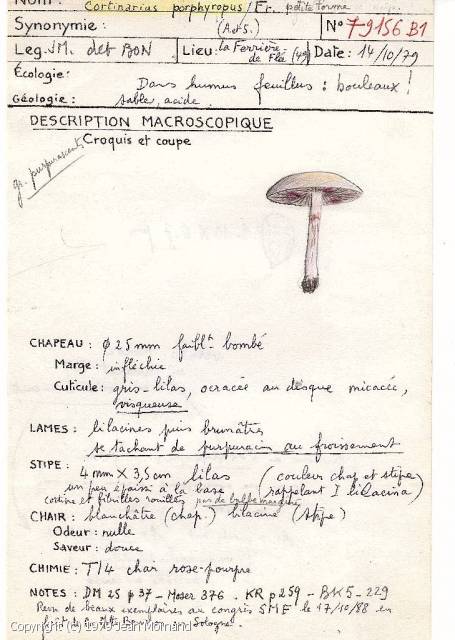 Nom : Cortinarius porphyropus / Fr. petite forme
Synonymie : (A et S.) N° 79156 B1
Leg. JM. det BON Lieu : La Ferrière de Flé (49) Date : 14/10/79
Écologie : Dans humus feuillus : bouleaux !
Géologie : sable, acide.
DESCRIPTION MACROSCOPIQUE
Croquis et coupe
gr. purpurascens
CHAPEAU : φ 25 mm faiblt bombé
Marge : infléchie
Cuticule : gris-lilas, ocracée au disque micacée,
visqueuse
LAMES : lilacines puis brunâtres
se tachant de purpuracin au froissement
STIPE : 4 mm X 3,5 cm lilas (couleur chap et stipe
un peu épaissi à la base rappelant I lilacina)
cortine et fibrilles rouillées pas de bulbe marginé
CHAIR : blanchâtre (chap.) lilacine (stipe)
Odeur : nulle
Saveur : douce
CHIMIE : Tl4 chair rose-pourpre
NOTES : DM 25 p 37 - Moser 376 . KR p 259 - BK5 - 229
Revu de beaux exemplaires au congrès SMF le 17/10/88 en
forêt de Sologne.
Copyright (c) 1979 Jean Mornand